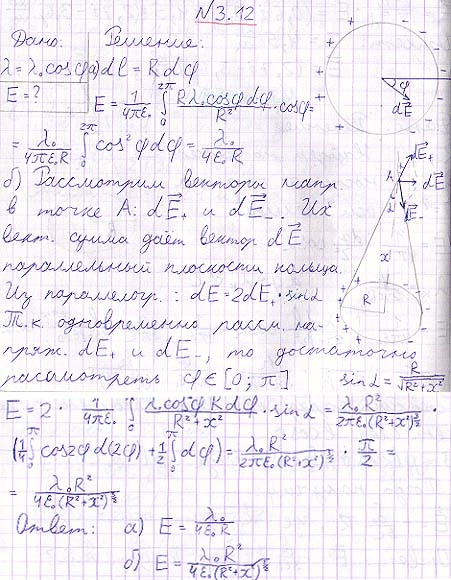 N 3.12
Дано: Решение:
λ = λ₀cosφ а) dl = R dφ
E = ? E = 1/(4πε₀) ∫₀^2π Rλ₀cosφdφ/R² · cosφ =
= λ₀/(4πε₀R) ∫₀^2π cos²φdφ = λ₀/(4ε₀R)
б) Рассмотрим векторы напр
в точке А: dE⃗₊ и dE⃗₋. Их
вект. сумма даёт вектор dE⃗
параллельный плоскости кольца.
Из параллелогр.: dE = 2dE₊·sinα
Т.к. одновременно рассм. на-
пряж. dE₊ и dE₋, то достаточно
рассмотреть φ∈[0; π] sinα = R/√(R²+x²)
E = 2 · 1/(4πε₀) ∫₀^π λ₀cos²φ R dφ/(R²+x²) · sinα = λ₀R²/(2πε₀(R²+x²)^3/2) ·
(1/4 ∫₀^π cos2φd(2φ) + 1/2 ∫₀^π dφ) = λ₀R²/(2πε₀(R²+x²)^3/2) · π/2 =
= λ₀R²/(4ε₀(R²+x²)^3/2)
Ответ: а) E = λ₀/(4ε₀R)
б) E = λ₀R²/(4ε₀(R²+x²)^3/2)
φ
dE⃗
E⃗₊
A
dE⃗
E⃗₋
α
x
R